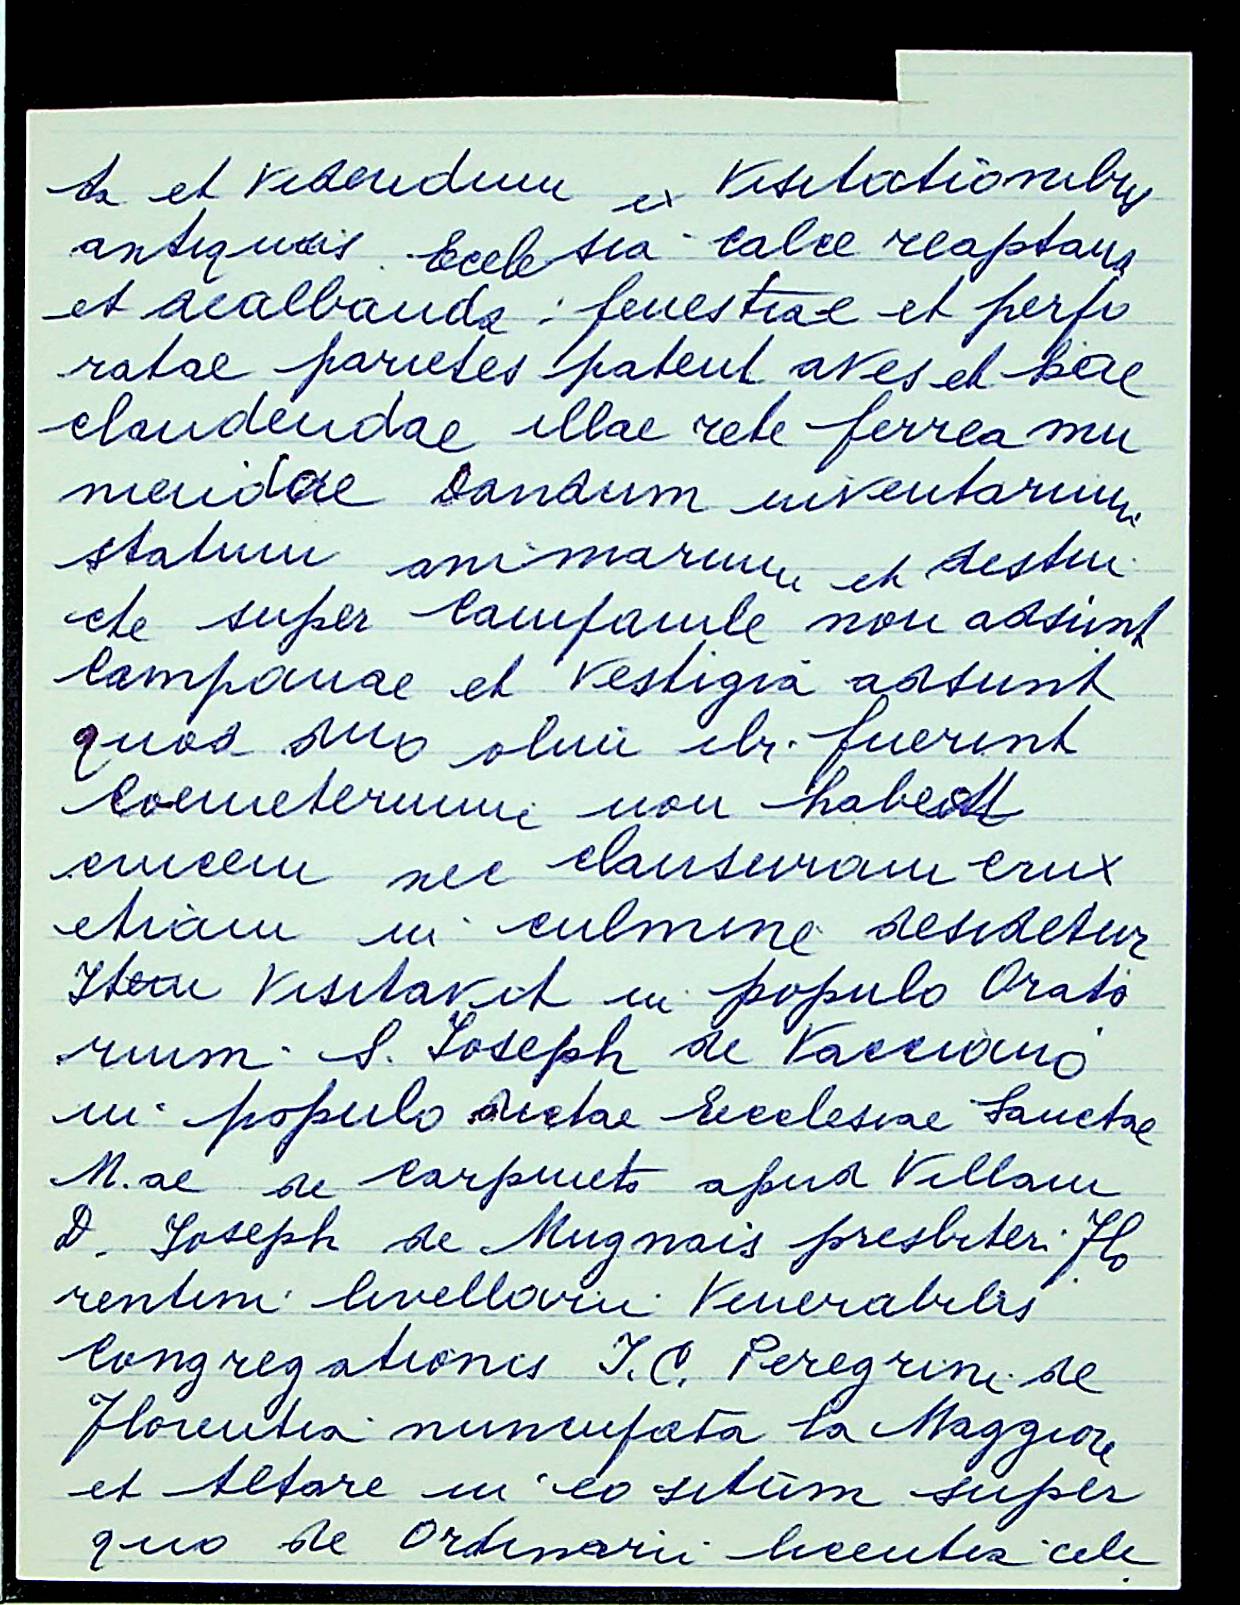 ta et videndum ex visitationibus
antiquis. Ecclesia calce reaptanda
et dealbanda; fenestrae et perfo
ratae parietes patent aves et hae
claudendae illae rete ferrea mu
niendae Dandum inventarium
statum animarum et
super Campanile non adsunt
Campanae et vestigia adsunt
quod duo olim ibi fuerint
Coemeterium non habet
crucem nec clausuram Crux
etiam in culmine desidetur
Item visitavit in populo Orato
rium S. Joseph de Vacciano
in populo dictae Ecclesiae Sanctae
M.ae de Carpineto apud Villam
D. Joseph de Mugnais presbiteri Flo
rentini livellarii Venerabilis
Congregationis J.C. Peregrini de
Florentia nuncupata la Maggiore
et Altare in eo situm super
quo de Ordinarii licentia cele